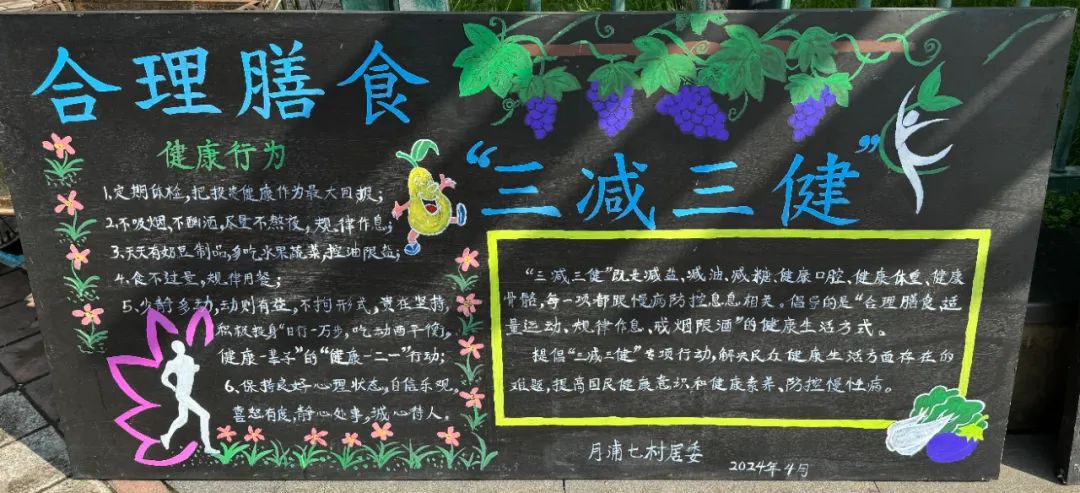 合理膳食
健康行为
1.定期体检,把投资健康作为最大回报;
2.不吸烟,不酗酒,尽量不熬夜,规律作息;
3.天天有奶豆制品,多吃水果蔬菜,控油限盐;
4.食不过量,规律用餐;
5.少静多动,动则有益,不拘形式,贵在坚持,
积极投身“日行一万步,吃动两平衡,
健康一辈子”的“健康一二一”行动;
6.保持良好心理状态,自信乐观,
喜怒有度,静心处事,诚心待人。
“三减三健”
“三减三健”既是减盐、减油、减糖、健康口腔、健康体重、健康
骨骼,每一项都跟慢病防控息息相关。倡导的是“合理膳食、适
量运动、规律作息、戒烟限酒”的健康生活方式。
提倡“三减三健”专项行动,解决民众健康生活方面存在的
难题,提高国民健康意识和健康素养、防控慢性病。
月浦七村居委
2024年4月